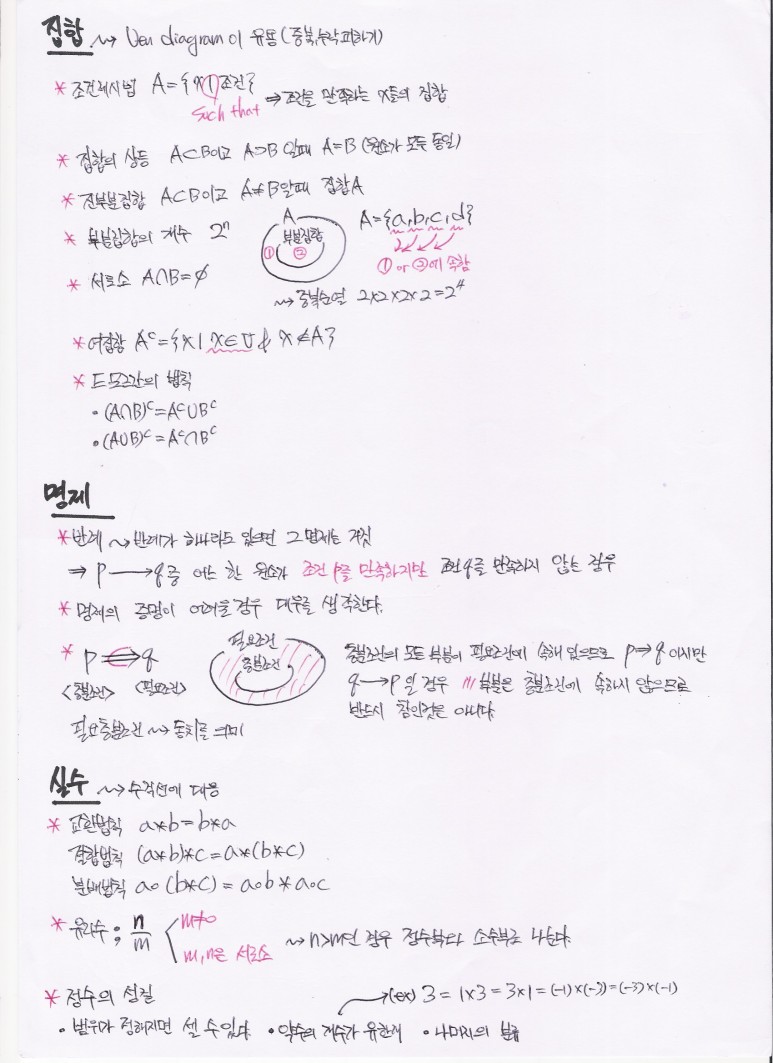 집합 ⇝ Ven diagram이 유용 (중복,누락 피하기)
* 조건제시법 A={x|조건} ⇒ 조건을 만족하는 x들의 집합
such that
* 집합의 상등 A⊂B이고 A⊃B일때 A=B (원소가 모두 동일)
* 진부분집합 A⊂B이고 A≠B일때 집합A
* 부분집합의 개수 2ⁿ
A
부분집합
① ②
A={a,b,c,d}
①or②에 속함
⇝ 중복순열 2x2x2x2=2⁴
* 서로소 A∩B=∅
* 여집합 Aᶜ={x| x∈U & x∉A}
* 드모르간의 법칙
• (A∩B)ᶜ=Aᶜ∪Bᶜ
• (A∪B)ᶜ=Aᶜ∩Bᶜ
명제
* 반례 ⇝ 반례가 하나라도 있으면 그 명제는 거짓
⇒ p→q 중 어느 한 원소가 조건 p를 만족하지만 조건 q를 만족하지 않는 경우
* 명제의 증명이 어려울 경우 대우를 생각한다.
* p ⇒ q
<충분조건> <필요조건>
필요조건
충분조건
충분조건의 모든 부분이 필요조건에 속해 있으므로 p⇒q 이지만
q→p 일 경우 /// 부분은 충분조건에 속하지 않으므로
반드시 참인것은 아니다.
필요충분조건 ⇝ 동치를 의미
실수 ⇝ 수직선에 대응
* 교환법칙 a*b=b*a
결합법칙 (a*b)*c=a*(b*c)
분배법칙 a∘(b*c)=a∘b*a∘c
* 유리수 ; n/m
m≠0
m,n은 서로소
⇝ n>m인 경우 정수부와 소수부로 나눈다.
* 정수의 성질
(ex) 3=1x3=3x1=(-1)x(-3)=(-3)x(-1)
• 범위가 정해지면 셀 수 있다. • 약수의 개수가 유한개 • 나머지의 분류